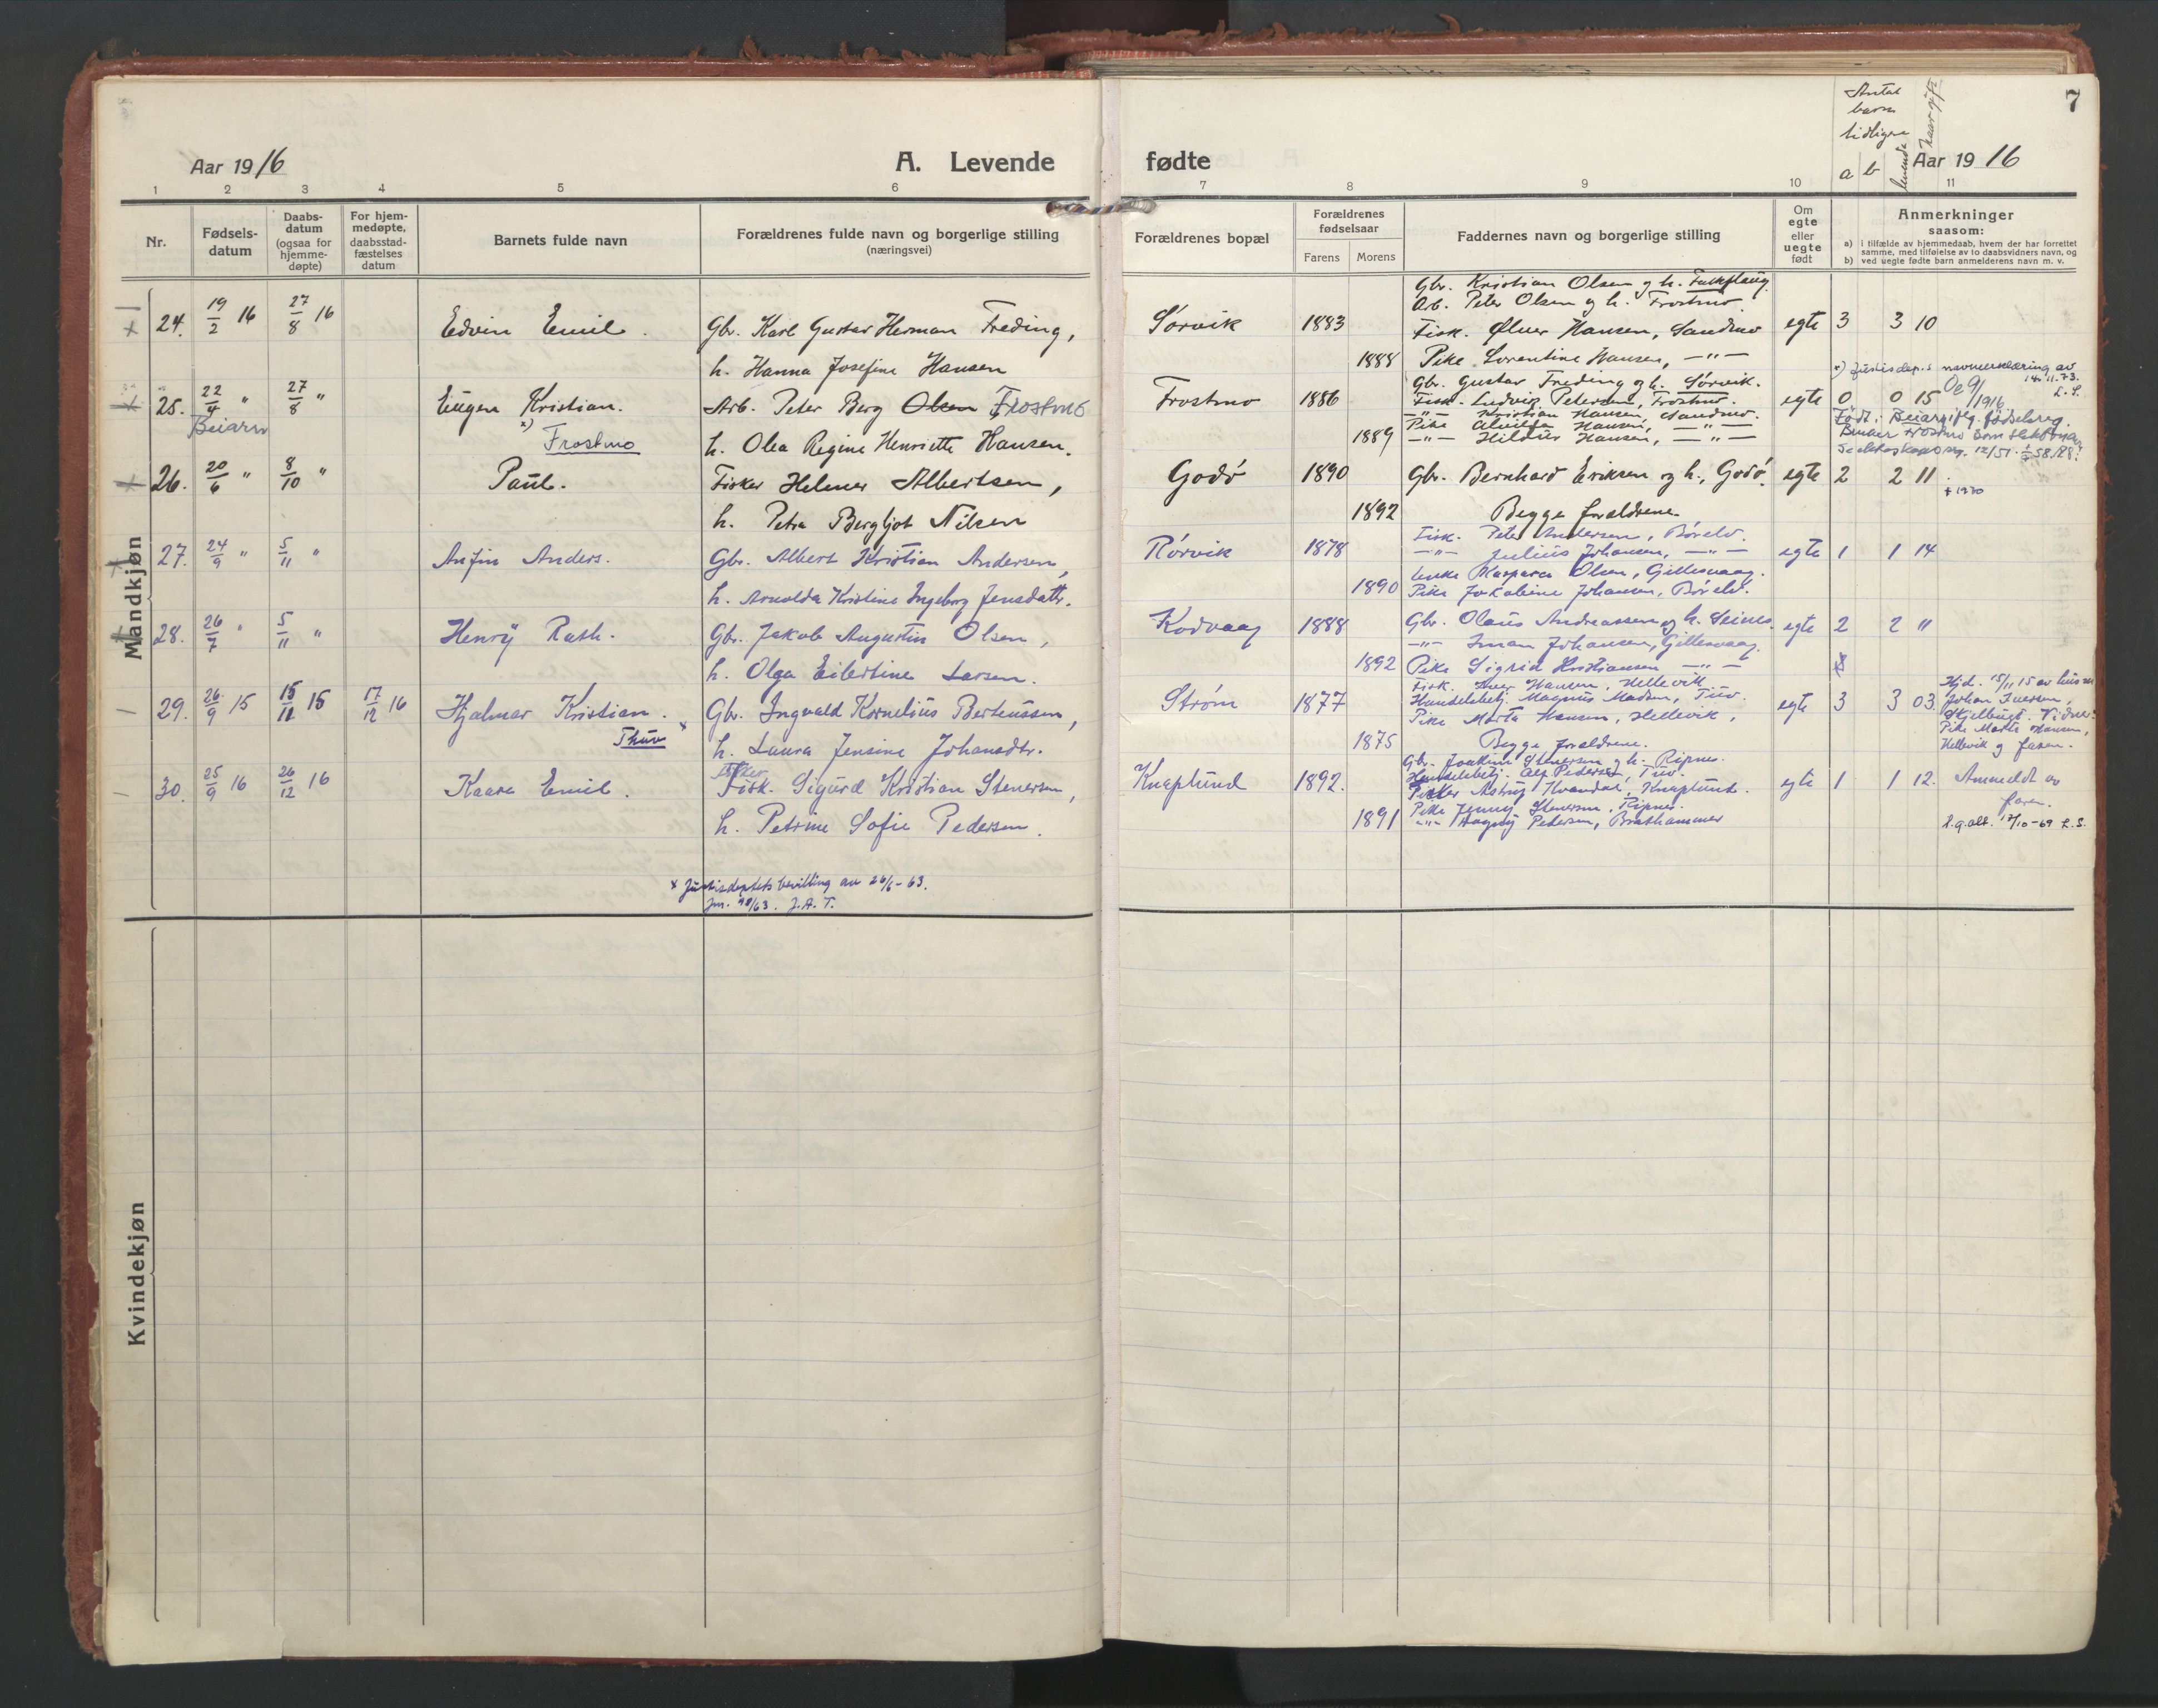 Aar 19 16
A. Levende
1 2 3 4 5 6
Nr.
Fødsels-
datum
Daabs-
datum
(ogsaa for
hjemme-
døpte)
For hjem-
medøpte,
daabsstad-
fæstelses
datum
Barnets fulde navn
Forældrenes fulde navn og borgerlige stilling
(næringsvei)
Mandkjøn
24. 19/2 16 27/8 16 Edvin Emil. Gbr. Karl Gustav Herman Freding,
h. Hanna Josefine Hansen
25. 22/4 " 27/8 " Eugen Kristian. Arb. Peter Berg Olsen Frostmo
Beiarn
x) Frostmo h. Olea Regine Henriette Hansen.
26. 20/6 " 8/10 " Paul. Fisker Helmer Albertsen,
h. Petra Bergljot Nilsen
27. 24/9 " 5/11 " Anfin Anders. Gbr. Albert Kristian Andersen,
h. Arnolda Kristine Ingeborg Jensdatr.
28. 26/7 " 5/11 " Henry Rath. Gbr. Jakob Augustin Olsen,
h. Olga Eilertine Larsen.
29. 26/9 15 15/11 15 17/12 16 Hjalmar Kristian. Gbr. Ingvald Kornelius Berteussen,
Thuv x h. Laura Jensine Johansdtr.
Fisker
30. 25/9 16 26/12 16 Kaare Emil. Fisk. Sigurd Kristian Stenersen,
h. Petrine Sofie Pedersen.
x Justisdeptets bevilling av 26/6-63.
Jnr. 98/63. J.A.T.
Kvindekjøn
7
Antal
barn
tidligere
a b levende
Naar gift
fødte
Aar 19 16
7 8 9 10 11
Forældrenes bopæl
Forældrenes
fødselsaar
Farens Morens
Faddernes navn og borgerlige stilling
Om
egte
eller
uegte
født
Anmerkninger
saasom:
a) i tilfælde av hjemmedaab, hvem der har forrettet
samme, med tilføielse av to daabsvidners navn, og
b) ved uegte fødte barn anmelderens navn m. v.
Gbr. Kristian Olsen og h. Falkflaug
Arb. Peter Olsen og h. Frostmo
Sørvik 1883 Fisk. Ølver Hansen, Sandmo egte 3 3 10
1888 Pike Lorentine Hansen, —"—
x) Justisdep.s navneerklæring av
14.11.73.
Gbr. Gustav Freding og h. Sørvik.
Frostmo 1886 Fisk. Ludvig Petersen, Frostmo. egte 0 0 15
—"— Kristian Hansen, Sandmo.
Født i Beiarn
1889 —"— Hildur Hansen, —"—
Bruker Frostmo som slektsnavn
Godø 1890 Gbr. Bernhard Eriksen og h., Godø. egte 2 2 11.
+ 1970
1892 Begge forældrene.
Fisk. Peter Andersen, Børelv.
Rørvik 1878 —"— Julius Johansen, —"— egte 1 1 14
Enke Kaspara Olsen, Gillesvaag.
1890 Pike Jakobine Johansen, Børelv.
Kodvaag 1888 Gbr. Olaus Andreassen og h. Seines. egte 2 2 "
—"— Iman Johansen, Gillesvaag.
1892 Pike Sigrid Kristiansen —"—
Fisk. Iver Hansen, Hellevik
Strøm 1877 Handelsbetj. Magnus Madsen, Tuv. egte 3 3 03.
Pike Marta Hansen, Hellevik,
1875 Begge forældrene.
Hjd. 15/11 15 av husm
Johan Iversen,
Skjelbugt. Vidner:
Pike Marta Hansen,
Hellevik og faren.
Gbr. Joakim Stenersen og h. Ripnes.
Handelsbetj. Alf Pedersen, Tuv.
Knaplund 1892. Pike Astrup Kvandal, Knaplund. egte 1 1 12. Anmeldt av
faren.
Pike Jenny Stenersen, Ripnes.
1891 —"— Dagny Pedersen, Brathammer
L.g.att. 17/10-69 L.S.